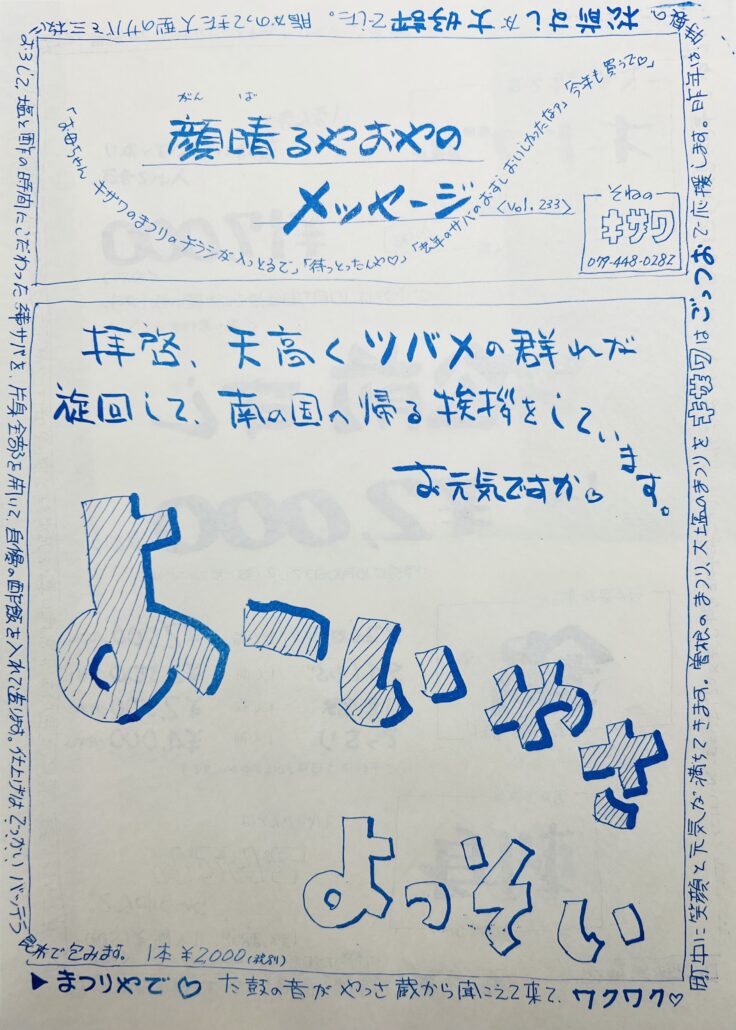 がんば
顔晴るやおやの
メッセージ
〈Vol. 233〉
「お母ちゃん キザワのまつりのチラシが入っとるで」「待っとったんや♡」「去年のサバのおすしおいしかったなァ」「今年も買って♡」
そねの
キザワ
079-448-0282
拝啓、天高くツバメの群れが
旋回して、南の国へ帰る挨拶をしています。
お元気ですか♡
よーいやさ
よっそい
▶まつりやで♡ 太鼓の音が やっさ蔵から聞こえて来て、ワクワク♡
町中に笑顔と元気が満ちてきます。曽根のまつり、大塩のまつりをキザワはごっつおで応援します。昨年は、
松前ずしが大好評でした。脂がのってきた大型のサバを三枚に
おろして、塩と酢の時間にこだわった〆サバを、片身全部を用いて、自慢の酢飯を入れて造ります。仕上げはでっかいバッテラ
昆布で包みます。 1本 ¥2000(税別)